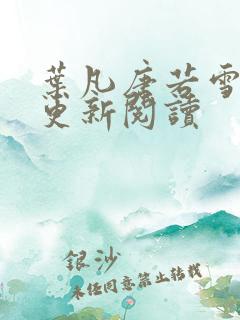 葉凡唐若雪
更新閱讀
銀沙
未经同意禁止转载